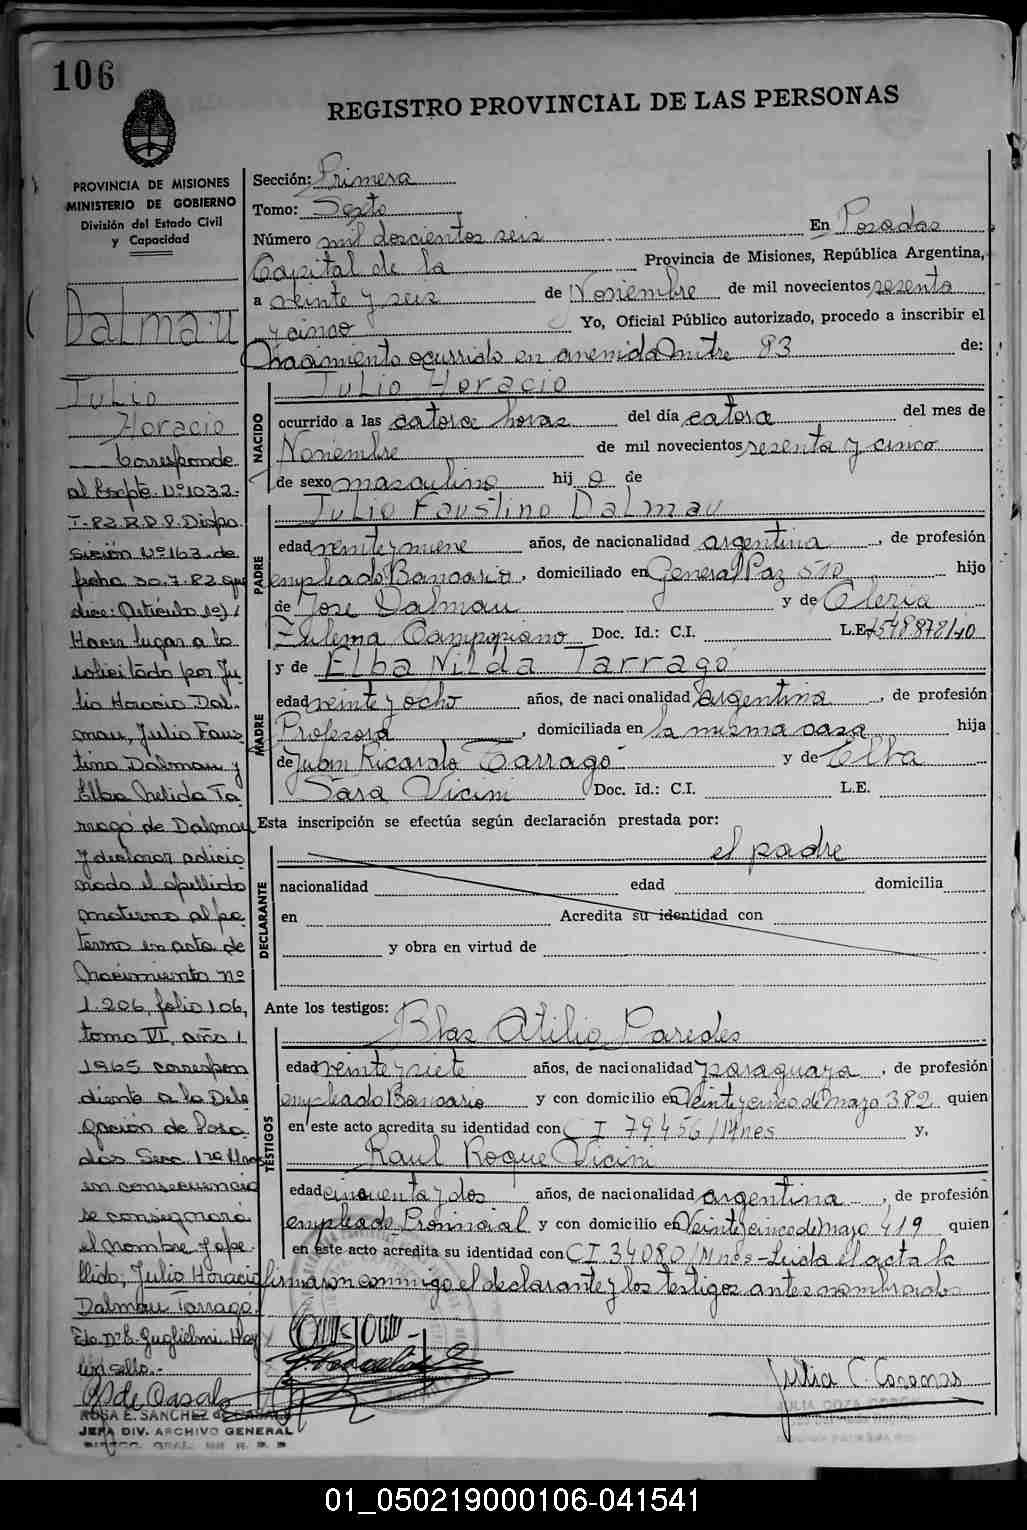 106
REGISTRO PROVINCIAL DE LAS PERSONAS
PROVINCIA DE MISIONES
MINISTERIO DE GOBIERNO
División del Estado Civil
y Capacidad
Dalmau
Julio
Horacio
Corresponde
al Expte. Nº 1032-
T-82 R.P.P. Dispo
sición Nº 163 de
fecha 30.7.82 que
dice: Artículo 1º)
Hacer lugar a lo
solicitado por Ju
lio Horacio Dal-
mau, Julio Faus
tino Dalmau y
Elba Nelida Ta
rragó de Dalmau
y declarar adicio
nado el apellido
materno al pa
terno en acta de
Nacimiento nº
1.206, folio 106,
tomo VI, año 1
1965 correspon
diente a la Dele
gación de Posa
das Secc. 1ra
en consecuencia
se consignará
el nombre y ape-
llido, Julio Horacio
Dalmau Tarragó.
Fdo. Guglielmi Hay
un sello.-
ROSA E. SANCHEZ de CASALS
JEFA DIV. ARCHIVO GENERAL
Sección: Primera
Tomo: Sexto
Número mil doscientos seis En Posadas
Capital de la Provincia de Misiones, República Argentina,
a veinte y seis de Noviembre de mil novecientos sesenta
y cinco Yo, Oficial Público autorizado, procedo a inscribir el
Nacimiento ocurrido en avenida Mitre 83 de:
NACIDO
Julio Horacio
ocurrido a las catorce horas del día catorce del mes de
Noviembre de mil novecientos sesenta y cinco
de sexo masculino hij o de
PADRE
Julio Faustino Dalmau
edad veinte y nueve años, de nacionalidad argentina, de profesión
empleado Bancario, domiciliado en General Paz 510 hijo
de José Dalmau y de Cleria
Zulema Campopiano Doc. Id.: C.I. L.E.
MADRE
y de Elba Nilda Tarragó
edad veinte y ocho años, de nacionalidad argentina, de profesión
Profesora, domiciliada en la misma casa hija
de Juan Ricardo Tarragó y de Elba
Sara Vicini Doc. Id.: C.I. L.E.
Esta inscripción se efectúa según declaración prestada por:
DECLARANTE
el padre
nacionalidad edad domicilia
en Acredita su identidad con
y obra en virtud de
Ante los testigos:
TESTIGOS
Blas Atilio Paredes
edad veinte y siete años, de nacionalidad paraguaya, de profesión
empleado Bancario y con domicilio en Veinte y cinco de Mayo 382 quien
en este acto acredita su identidad con C I 79.456/Mnes y,
Raul Roque Vicini
edad cincuenta y dos años, de nacionalidad argentina, de profesión
empleado Provincial y con domicilio en Veinte y cinco de Mayo 419 quien
en este acto acredita su identidad con C I. 34080/Mnes-Leida el acta la
firmaron conmigo el declarante y los testigos antes nombrados
01_050219000106-041541